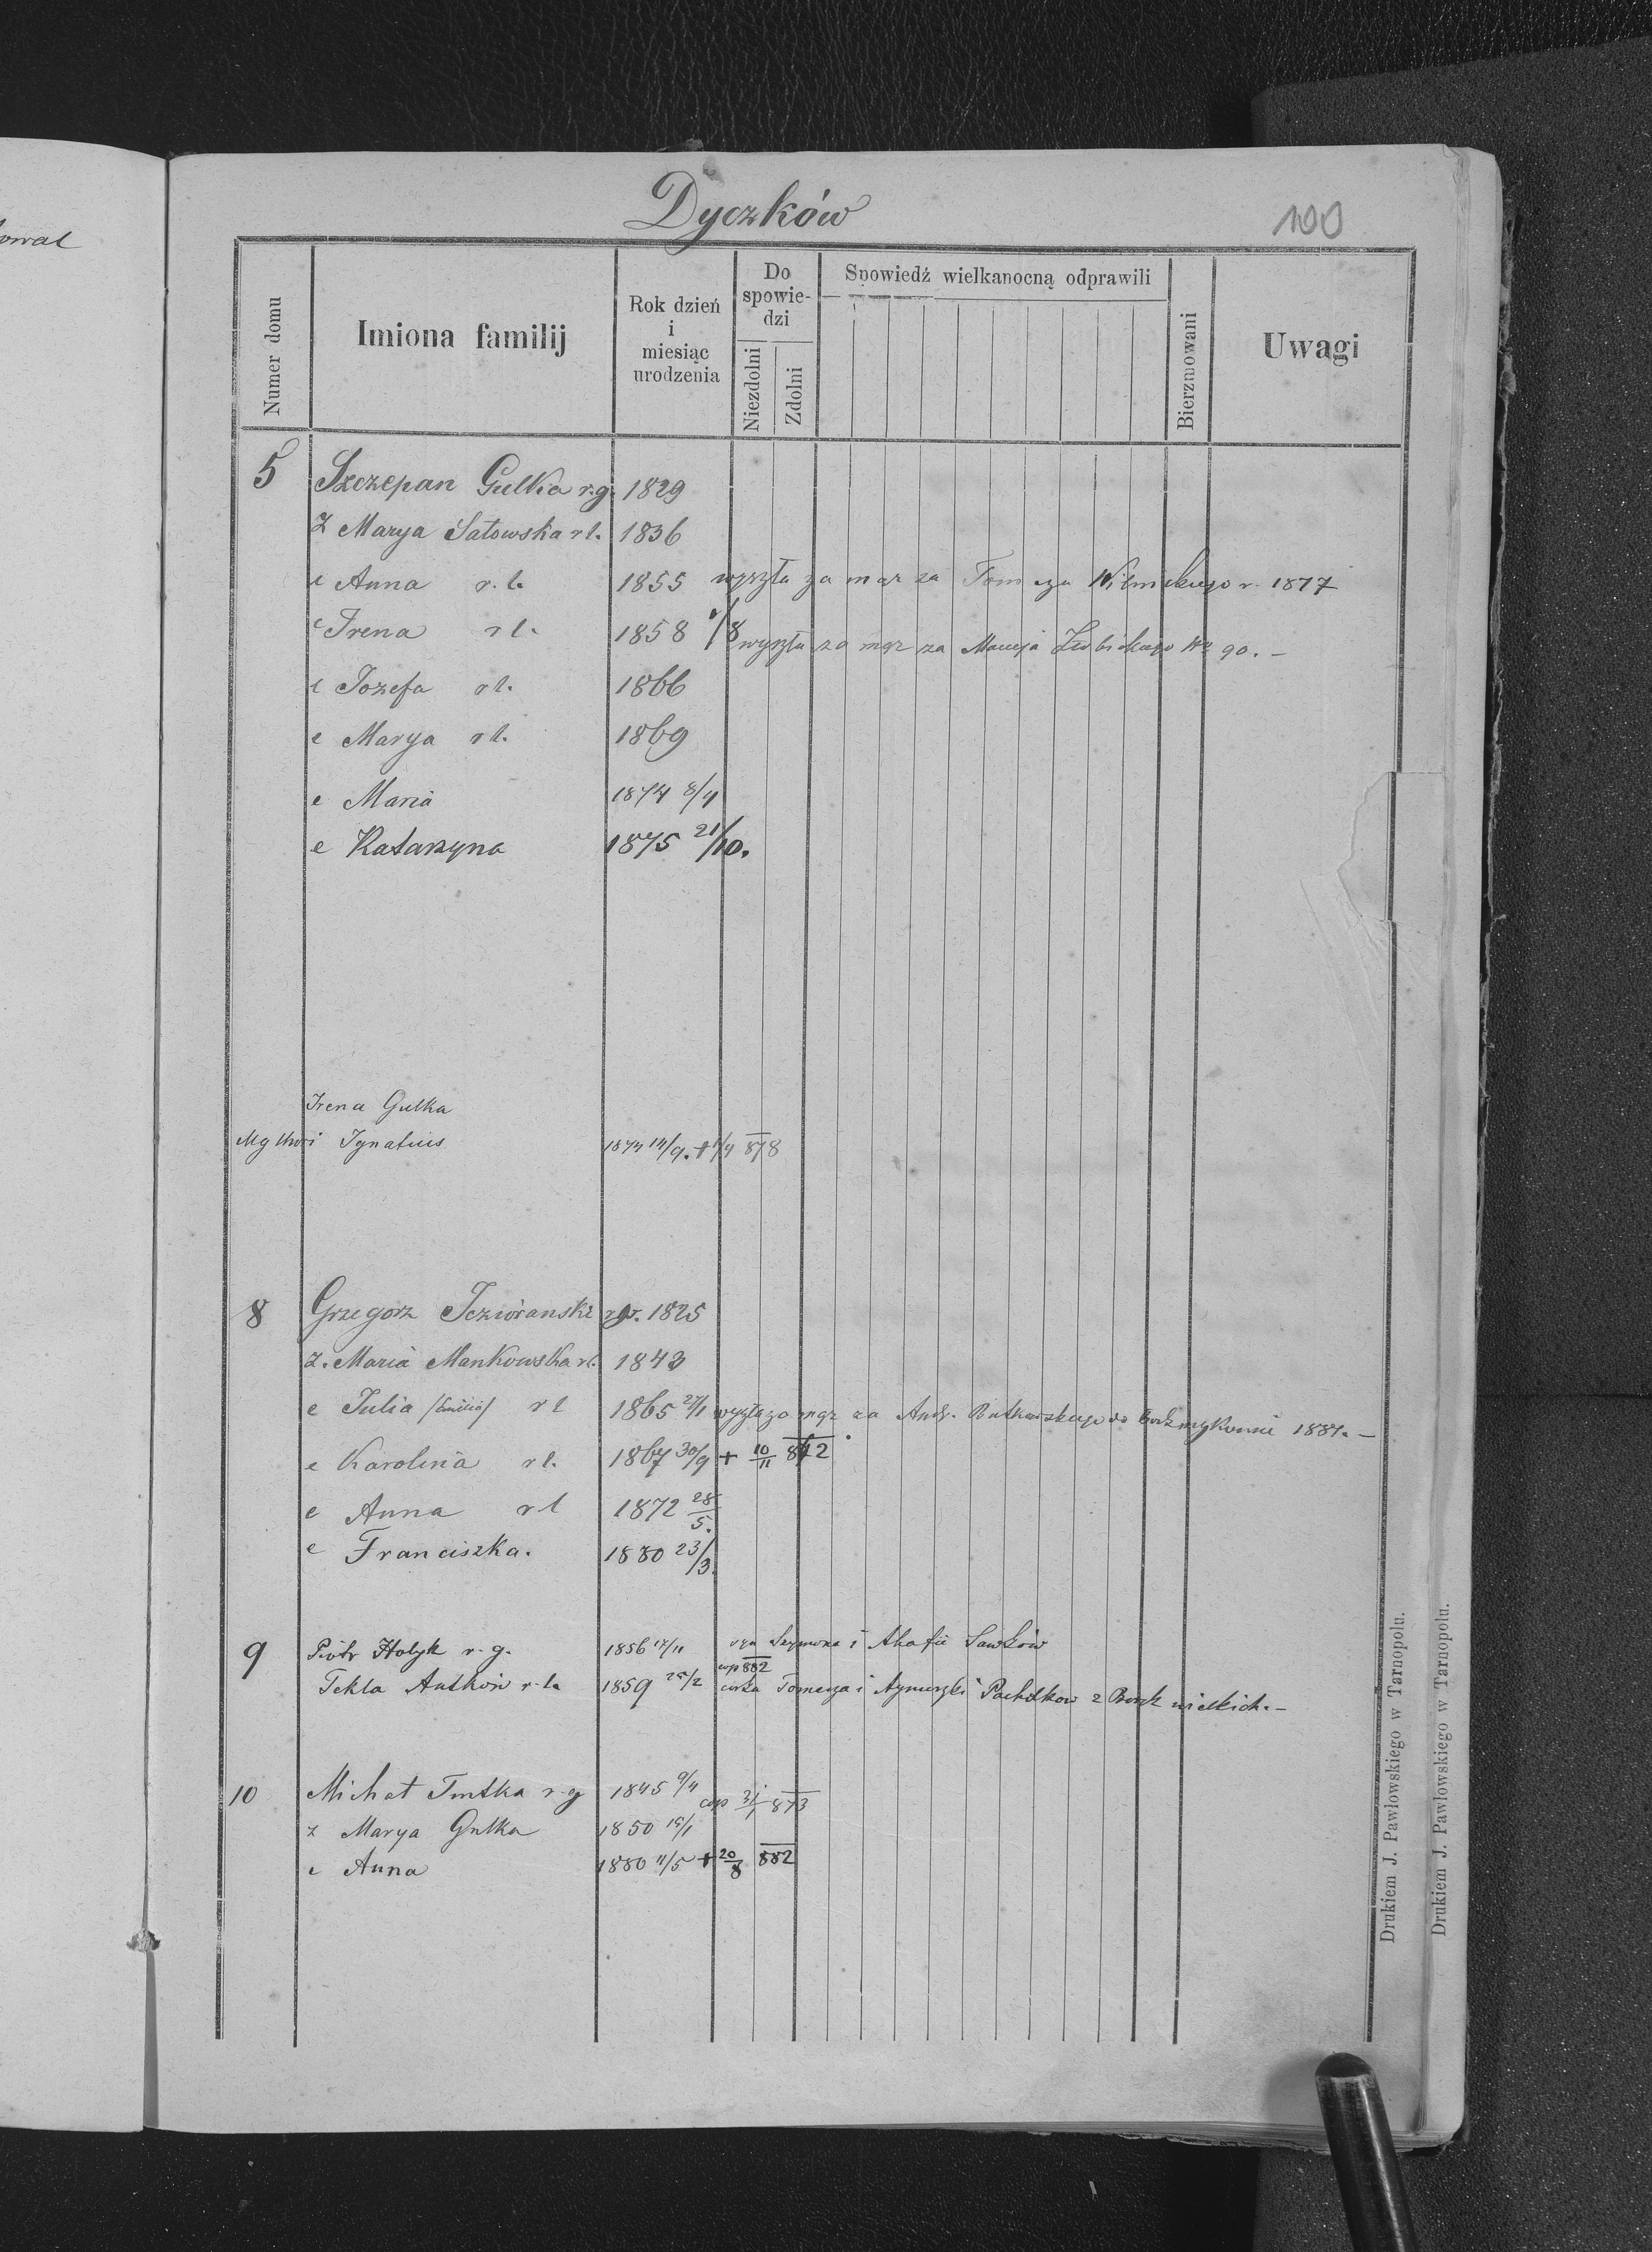 Dyczków
100
Numer domu
Imiona familij
Rok dzień i miesiąc urodzenia
Do spowiedzi
Niezdolni
Zdolni
Spowiedź wielkanocną odprawili
Bierzmowani
Uwagi
5 Szczepan Gulka r.g. 1829
Z Marya Satowska r l. 1836
c Anna r. l. 1855 wyszła za mąz za Tomasza r. 1877
c Irena r l. 1858 1/8 wyszła za mąz za Macieja No 90. –
c Jozefa r l. 1866
c Marya r l. 1869
c Maria 1874 8/4
c Katarzyna 1875 21/10.
Irena Gulka
Ignatius 1874 14/9. + 1/4 878
8 Grzegorz Jeziorański r gr. 1825
Z. Maria Mankowska r l. 1843
c Julia /Emilia/ r l 1865 27/1 wyszła za mąz za Andr. 1881. –
c Karolina r l. 1867 30/9 + 10/11 872
c Anna r l 1872 28/5.
c Franciszka. 1880 23/3.
9 Piotr Hołyk r. g. 1856 17/11 syn Szymona i Ahafii Sawków
cop 882
Tekla Antków r. l. 1859 25/2 córka Tomasza i Pachołków z Borek wielkich. –
10 Michał Tmtka r. g 1845 9/4
cop 31/1 873
z Marya Gulka 1850 15/1
c Anna 1880 11/5 + 20/8 882
owal
Drukiem J. Pawłowskiego w Tarnopolu.
Drukiem J. Pawłowskiego w Tarnopolu.